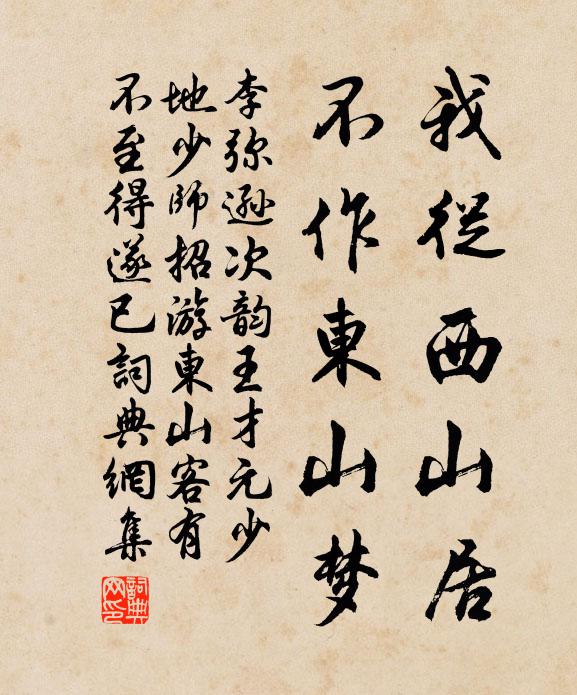 我從西山居
不作東山梦
李弥遜次韵王才元少
地少師招游東山客有
不至得遂已詞典網集
詞典網印